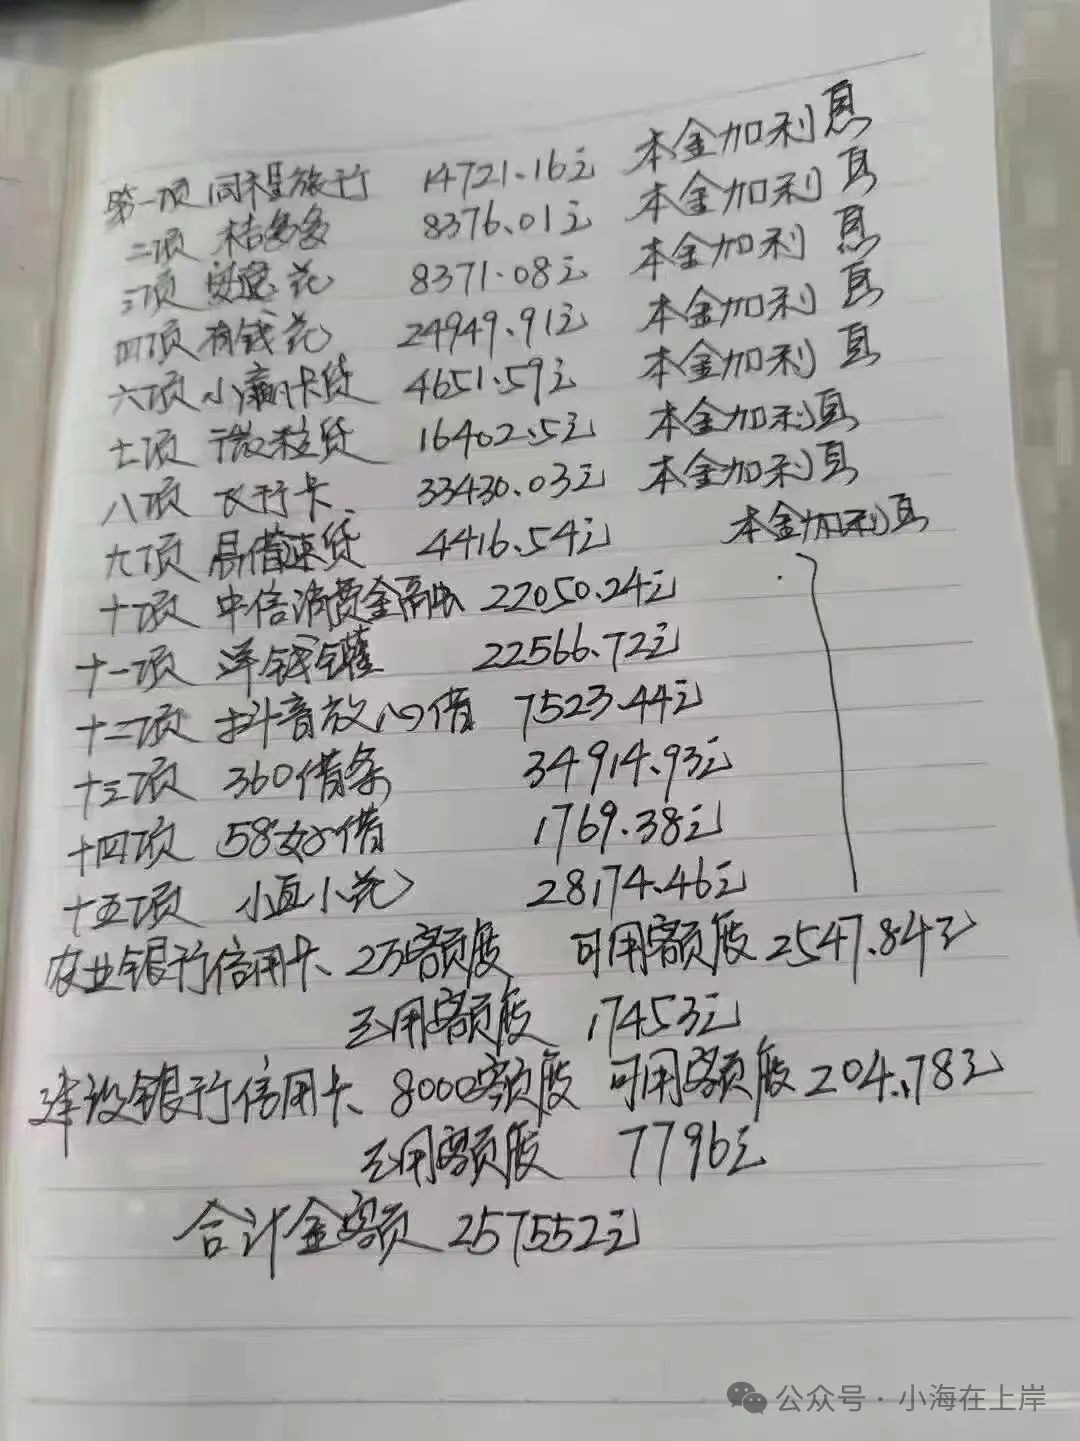 第一项 同程旅行 14721.16元 本金加利息
二项 桔多多 8376.01元 本金加利息
三项 安逸花 8371.08元 本金加利息
四项 有钱花 24949.91元 本金加利息
六项 小赢卡贷 4651.59元 本金加利息
七项 微粒贷 16402.5元 本金加利息
八项 飞行卡 33430.03元 本金加利息
九项 易借速贷 4416.54元 本金加利息
十项 中信消费金融 22050.24元
十一项 洋钱罐 22566.72元
十二项 抖音放心借 7523.44元
十三项 360借条 34914.93元
十四项 58好借 1769.38元
十五项 小直小花 28174.46元
农业银行信用卡、2万额度 可用额度2547.84元
已用额度 17453元
建设银行信用卡、8000额度 可用额度204.78元
已用额度 7796元
合计金额 257552元
公众号·小海在上岸